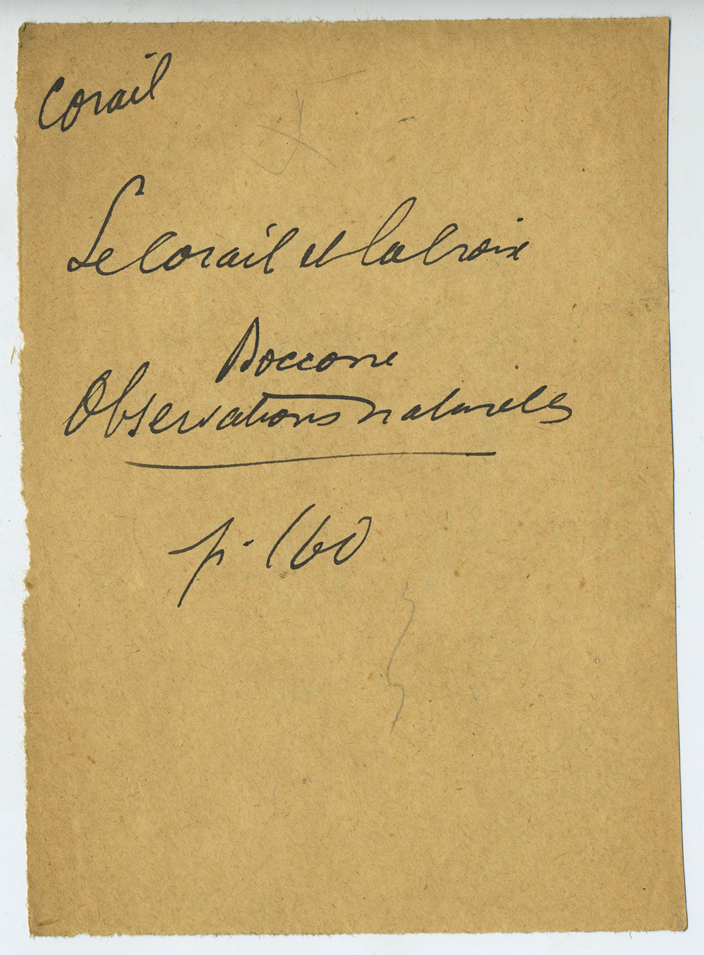 Corail
Le Corail et la Croix
Boccone
Observations naturelles
p. 160